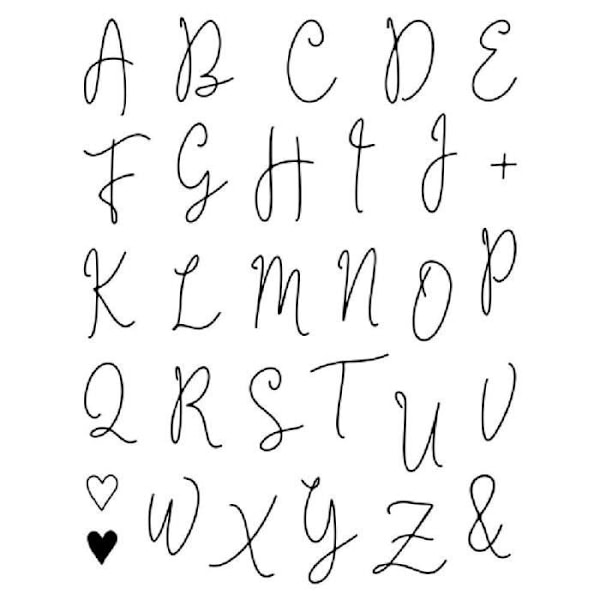 A B C D E
F G H I J +
K L M N O P
Q R S T U V
♡ ♥ W X Y Z &